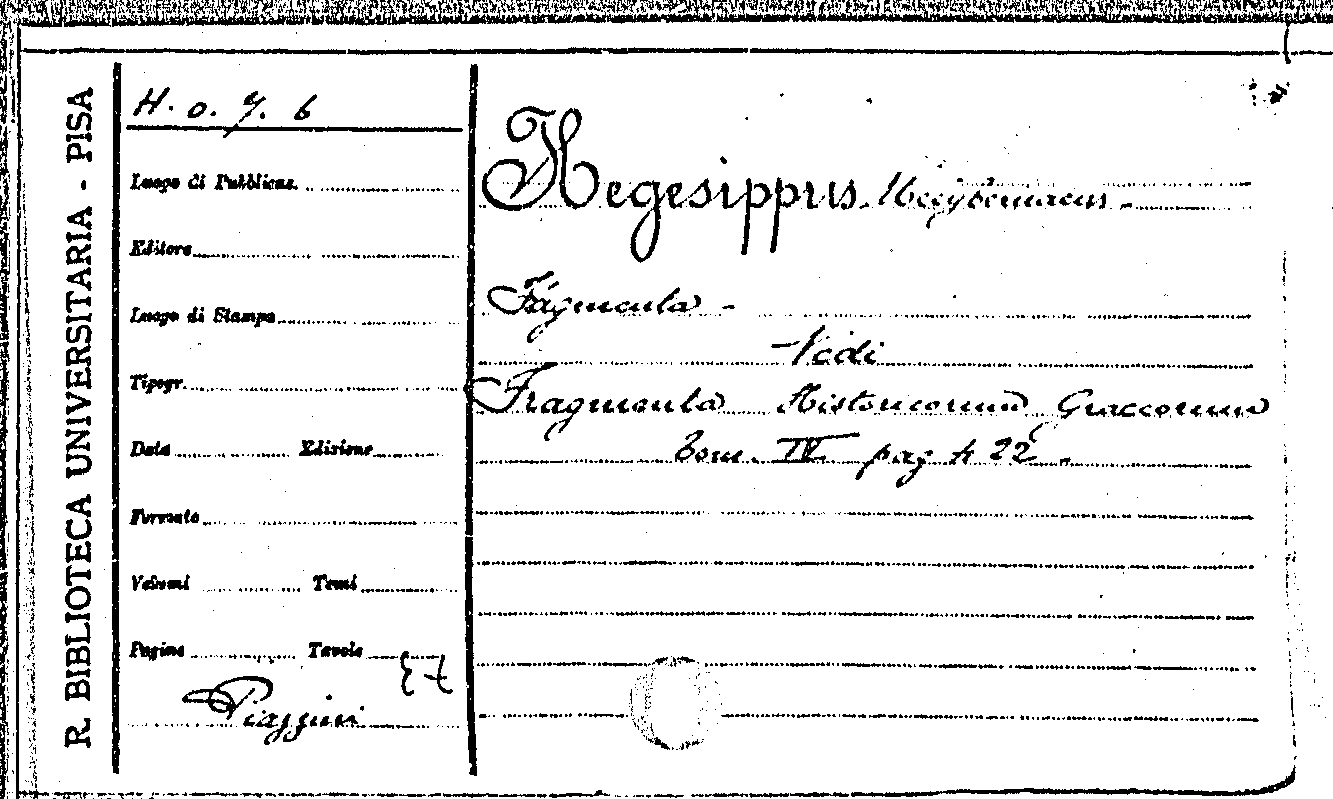 R. BIBLIOTECA UNIVERSITARIA - PISA
H. o. 7. 6
Luogo di Pubblicaz.
Editore
Luogo di Stampa
Tipogr.
Data Edizione
Formato
Volumi Tomi
Pagine Tavole
Piaggini
Hegesippus Mecybernaeus -
Fragmenta -
Vedi
Fragmenta Historicorum Graecorum
Tom. IV. pag 422.